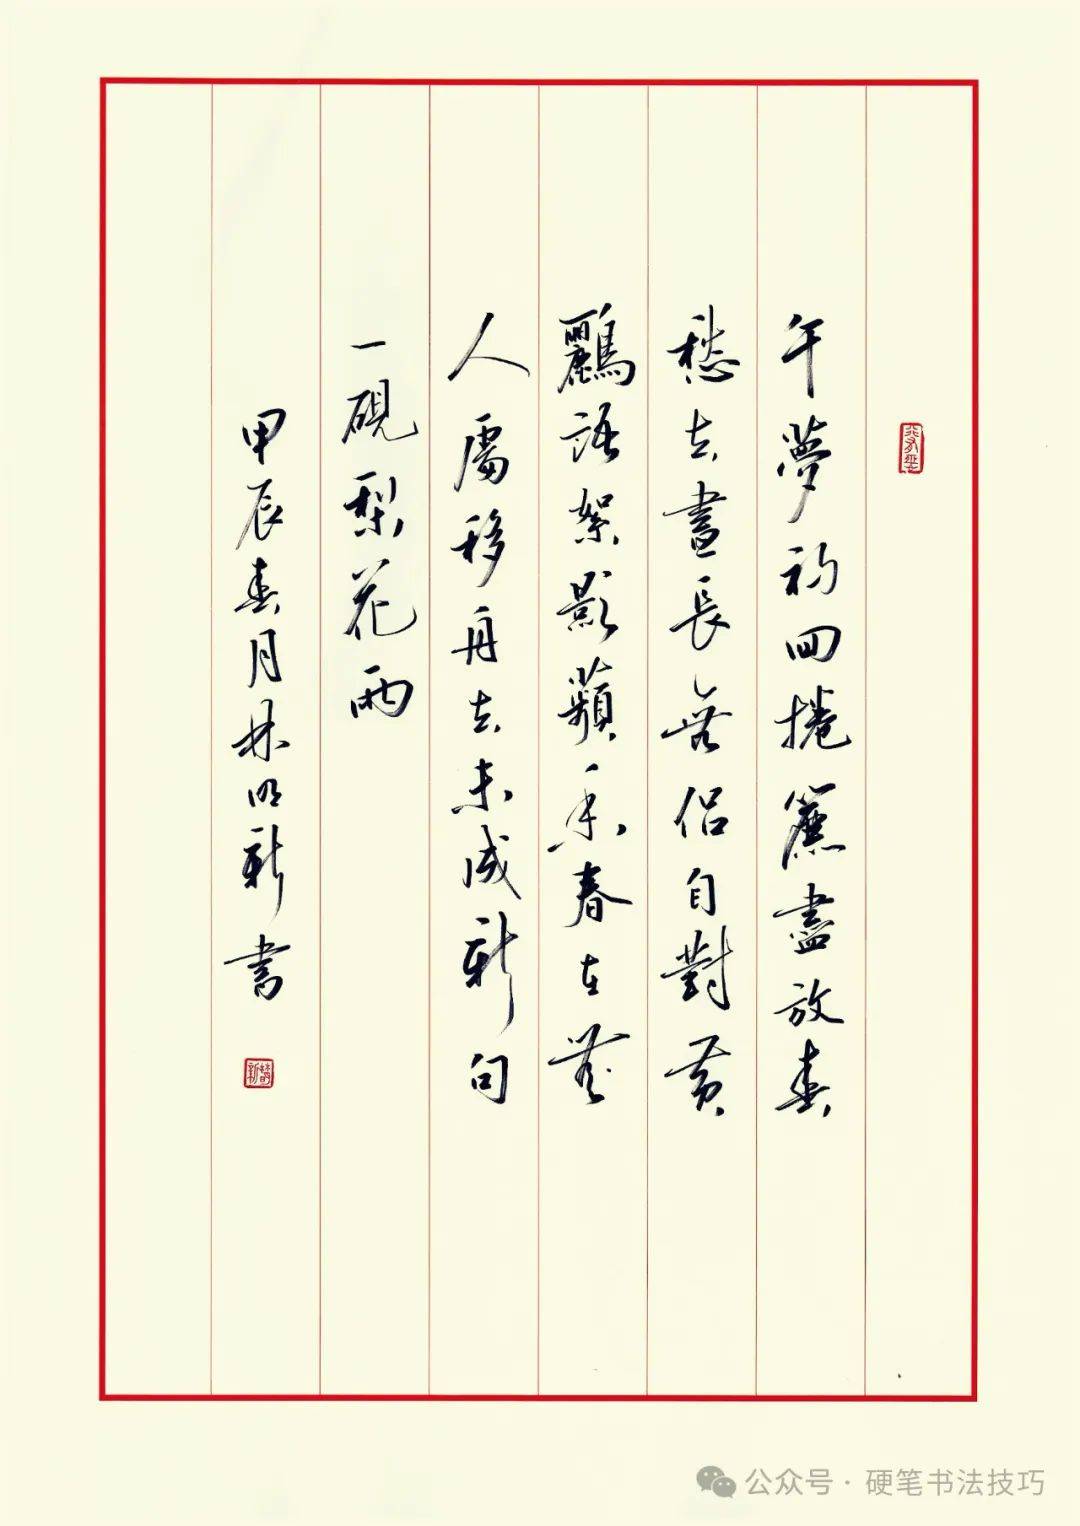 午夢初回捲簾盡放春
愁去晝長無侶自對黃
鸝語絮影蘋香春在無
人處移舟去未成新句
一硯梨花雨
甲辰春月林明新書
公众号·硬笔书法技巧